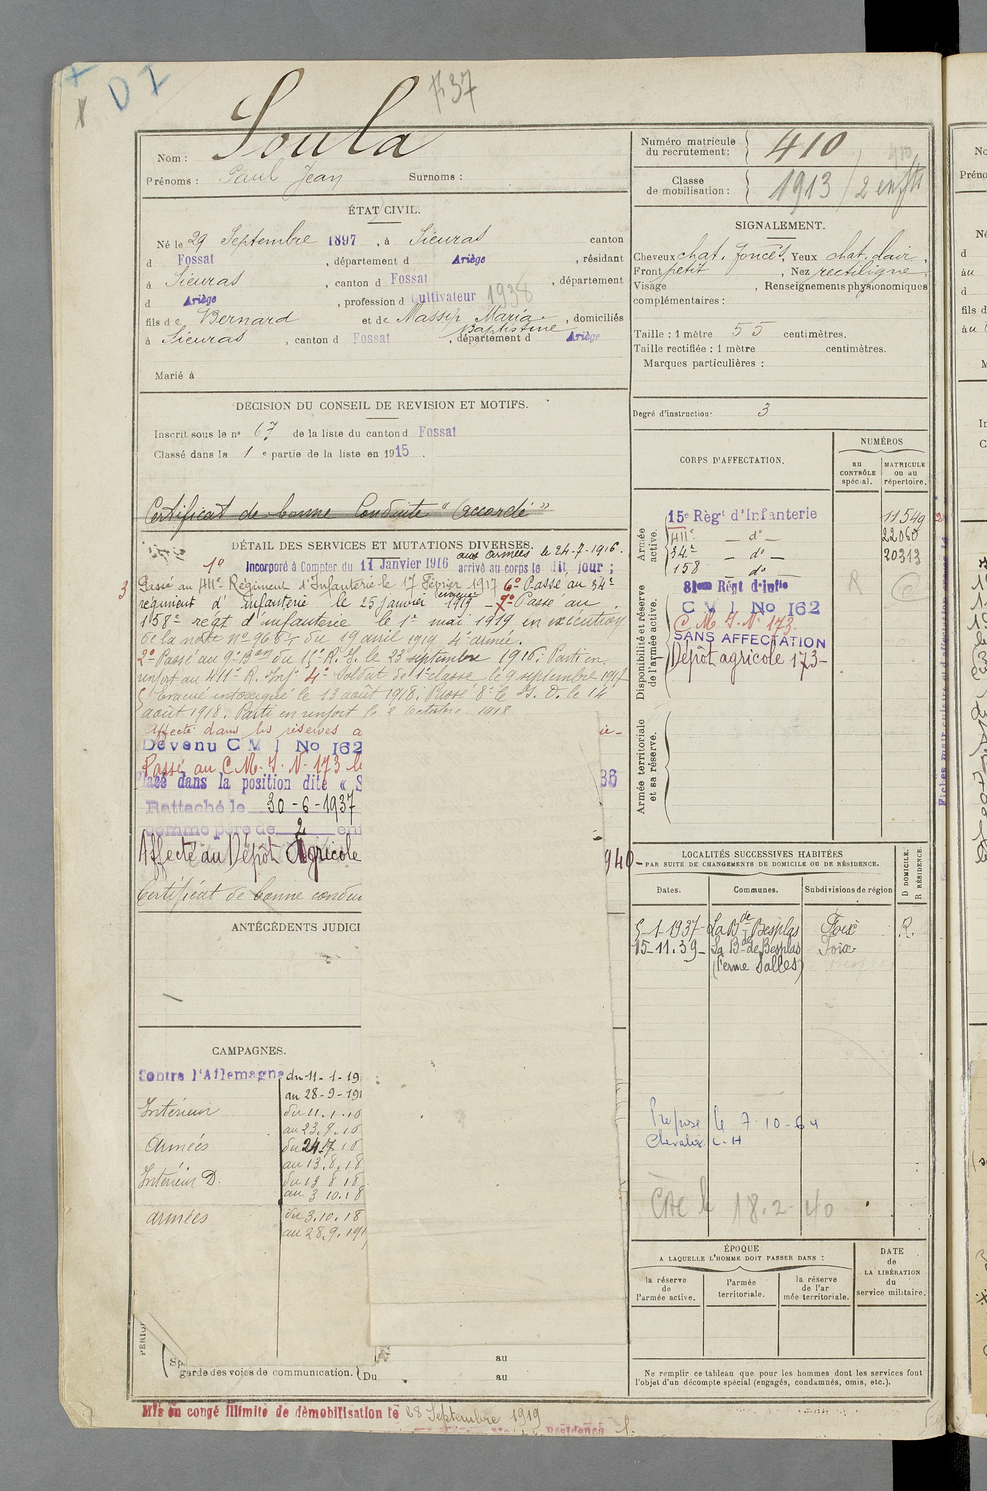 X D I
F 37
Soula
Nom :
Prénoms : Paul Jean Surnoms :
ÉTAT CIVIL.
Né le 29 Septembre 1897, à Sieuras canton
d Fossat, département d Ariège, résidant
à Sieuras, canton d Fossat, département
d Ariège, profession d Cultivateur 1938
fils de Bernard et de Massip Maria Baptistine, domiciliés
à Sieuras, canton d Fossat, département d Ariège
Marié à
DÉCISION DU CONSEIL DE REVISION ET MOTIFS.
Inscrit sous le n° 67 de la liste du canton d Fossat
Classé dans la 1e partie de la liste en 1915.
Certificat de bonne Conduite "Accordé"
DÉTAIL DES SERVICES ET MUTATIONS DIVERSES.
aux Armées le 24-7-1916.
1° Incorporé à Compter du 11 Janvier 1916 arrivé au corps le dit jour ;
3 Passé au 411e Régiment d'Infanterie le 17 Février 1917 6° Passé au 34e
régiment d'infanterie le 25 janvier 1919 - 7° Passé au
158e régt d'infanterie le 1er mai 1919 en exécution
de la note n° 9685 du 19 avril 1919 4e armée.
2° Passé au 9e Bon du 15e R.I. le 23 septembre 1916. Parti en
renfort au 411e R. Inf 4° Soldat de 1e classe le 9 septembre 1917
5° Evacué intoxiqué le 13 août 1918. Passé D.I. le 14
août 1918. Parti en renfort le 3 Octobre 1918
Affecté dans les réserves a
Devenu C M I No 162
Passé au C.M.I.N. 173 le
Placé dans la position dite « S
Rattaché le 30-6-1937
comme père de 2 en
Affecté au Dépôt Agricole
940-
Certificat de bonne condui
ANTÉCÉDENTS JUDICI
CAMPAGNES.
Contre l'Allemagne du 11-1-19
au 28-9-191
Intérieur du 11.1.16
au 23.7.16
Armées du 24.7.16
au 13.8.18
Intérieur D. du 13 8 18
au 3 10.18
armées du 3.10.18
au 28.9.191
garde des voies de communication. Du au
au
Mis en congé illimité de démobilisation le 28 Septembre 1919
Numéro matricule du recrutement : 410
Classe de mobilisation : 1913 / 2 enfts
SIGNALEMENT.
Cheveux chat. foncé, Yeux chat. clair,
Front petit, Nez rectiligne
Visage, Renseignements physionomiques
complémentaires :
Taille : 1 mètre 55 centimètres.
Taille rectifiée : 1 mètre centimètres.
Marques particulières :
Degré d'instruction 3
CORPS D'AFFECTATION.
NUMÉROS
au CONTRÔLE spécial.
MATRICULE ou au répertoire.
Armée active.
15e Règt d'Infanterie 11549
411e — do — 22060
34e — do — 20313
158 — do
Disponibilité et réserve de l'armée active.
81eme Régt d'Infie
C M I No 162
C. M. I. N. 173.
SANS AFFECTATION
Dépôt agricole 173-
Armée territoriale et sa réserve.
LOCALITÉS SUCCESSIVES HABITÉES
PAR SUITE DE CHANGEMENTS DE DOMICILE OU DE RÉSIDENCE.
Dates. Communes. Subdivisions de région D DOMICILE. R RÉSIDENCE.
5-1-1937 La Bde Besplas Foix R.
15-11.39 La Bde de Besplas Foix
(Ferme Salles)
Proposé le 7-10-64
Chevalier L-H
le 18.2-40
ÉPOQUE
A LAQUELLE L'HOMME DOIT PASSER DANS :
la réserve de l'armée active.
l'armée territoriale.
la réserve de l'armée territoriale.
DATE de LA LIBÉRATION du service militaire.
Ne remplir ce tableau que pour les hommes dont les services font
l'objet d'un décompte spécial (engagés, condamnés, omis, etc.).